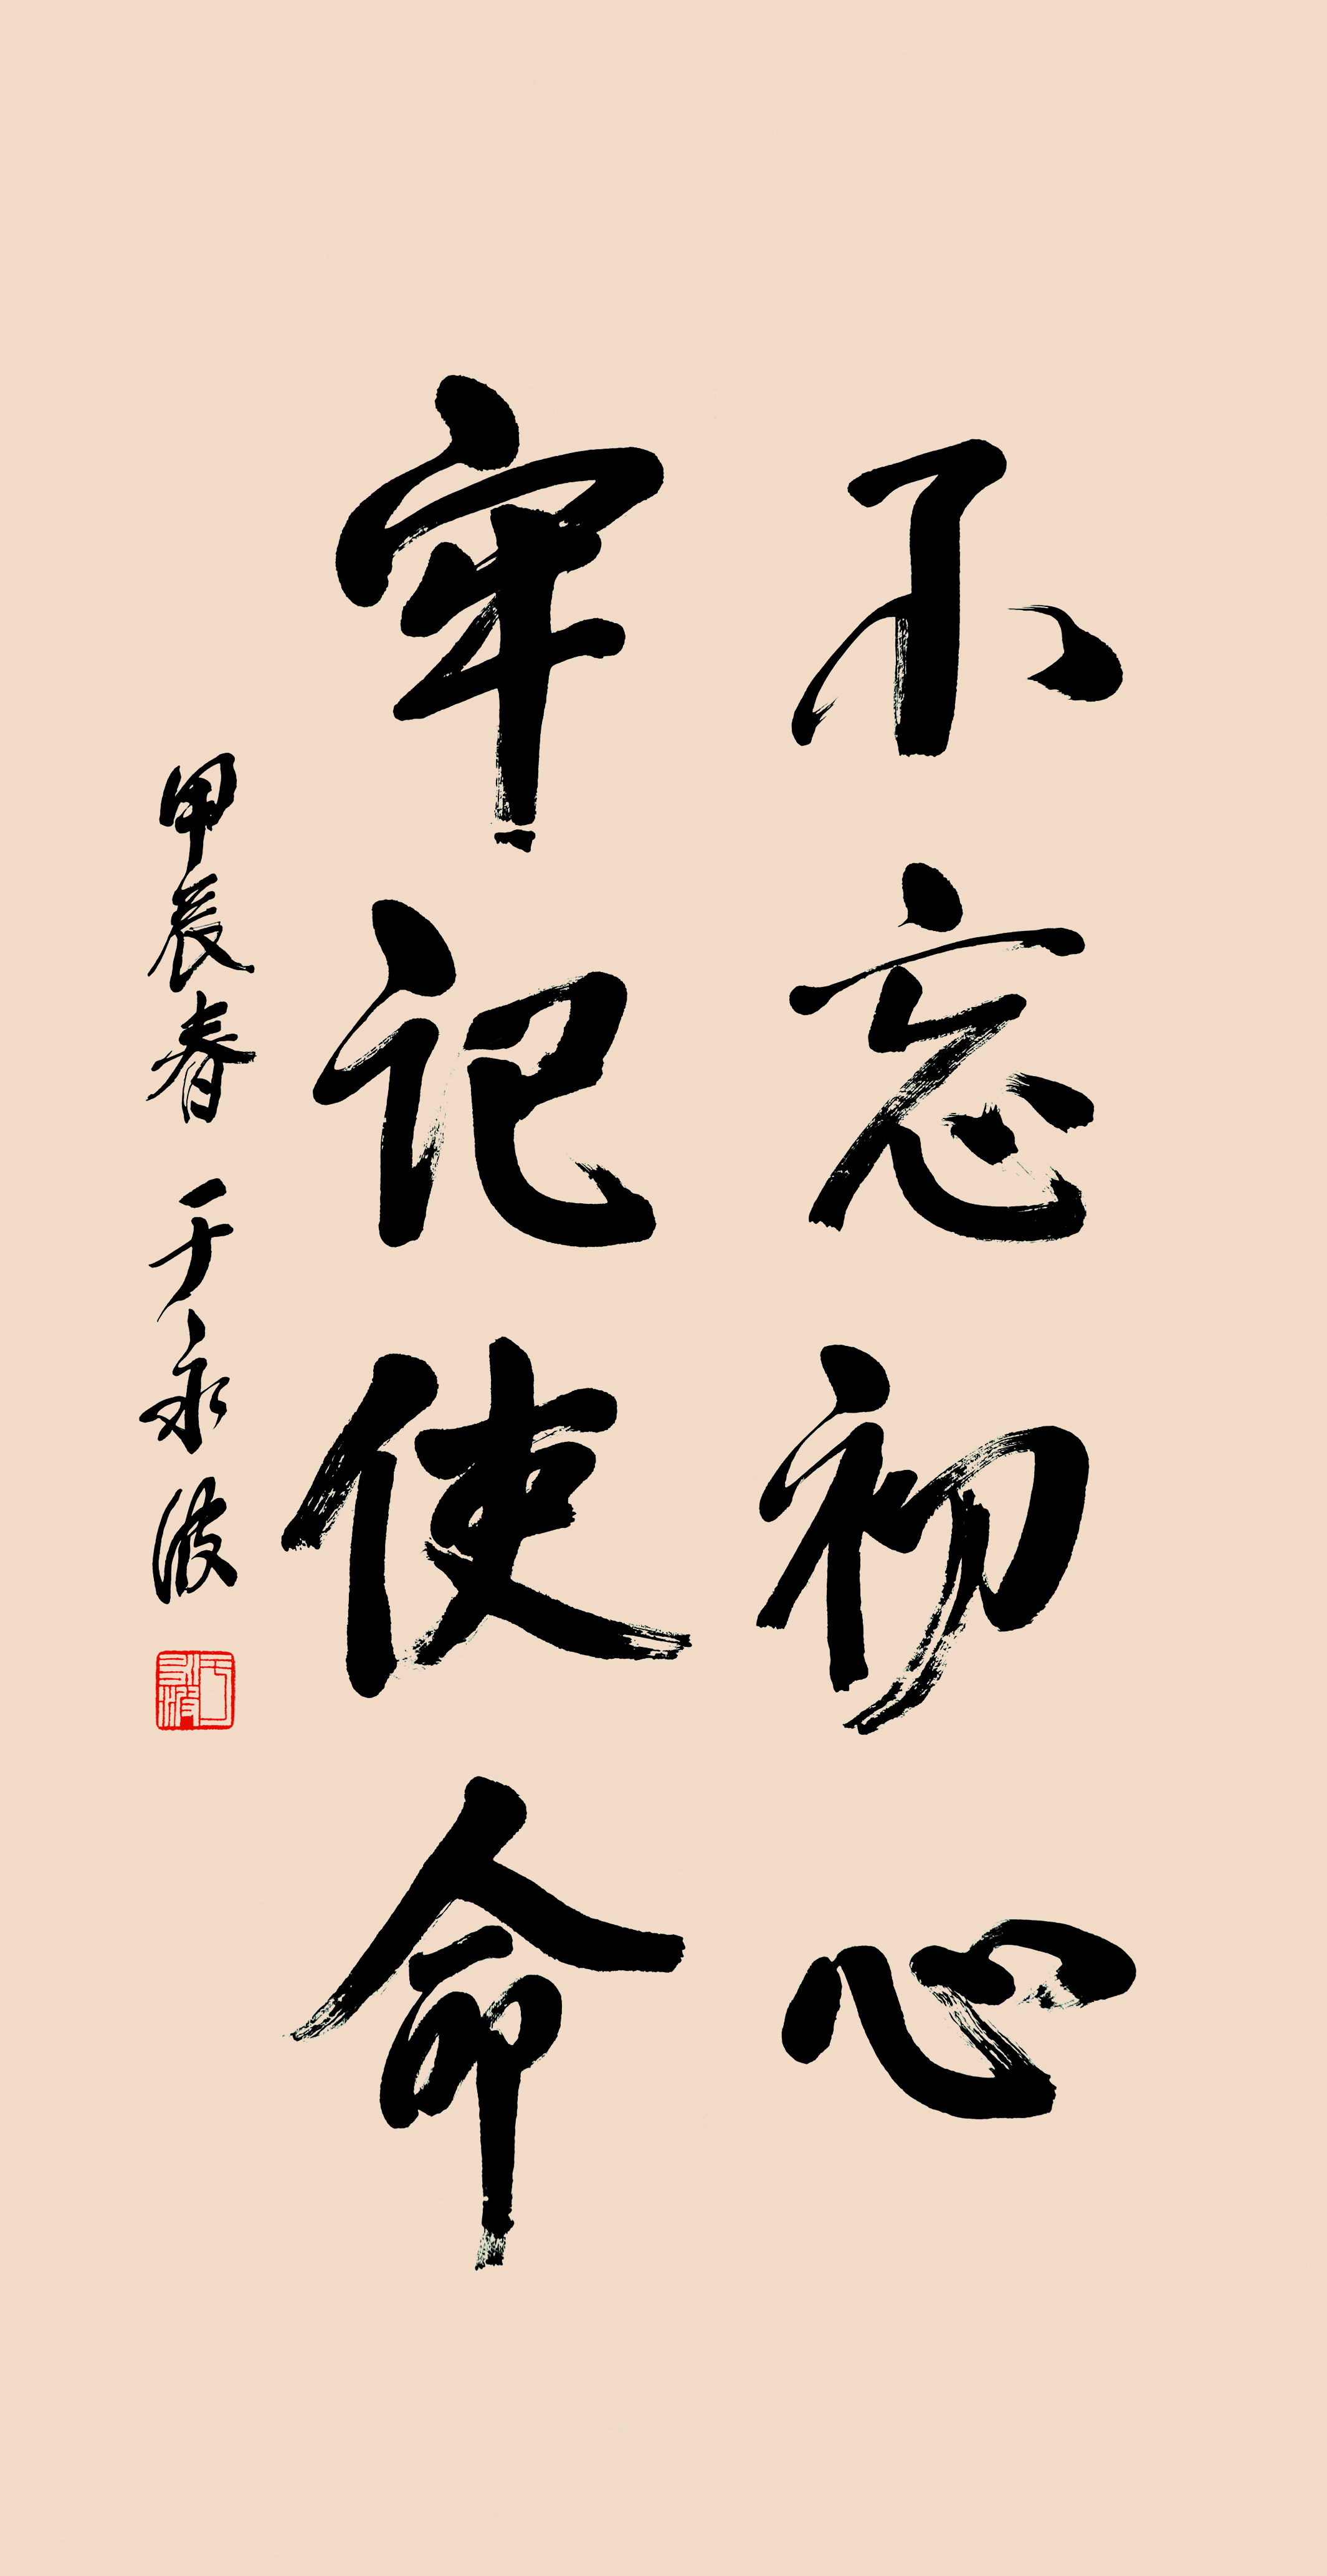 不忘初心
牢记使命
甲辰春 于永波